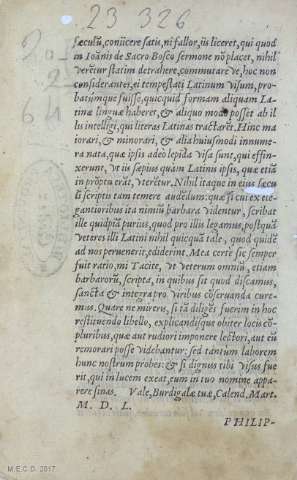 23 326
sæculū, coniicere satis, ni fallor, iis liceret, qui quod
in Ioānis de Sacro Bosco sermone nō placet, nihil
verētur statim detrahere, commutare ve, hoc non
considerantes, ei tempestati Latinum visum, proba
batumque fuisse, quicquid formam aliquam La-
tinæ linguæ haberet, & aliquo modo posset ab il
lis intelligi, qui literas Latinas tractarēt. Hinc ma
iorari, & minorari, & alia huiusmodi innume
ra nata, quæ ipsis adeò lepida visa sunt, qui effin-
xerunt, vt iis sæpius quàm Latinis ipsis, quæ etiā
in prōptu erāt, vterētur. Nihil itaque in eius sæcu
li scriptis tam temere audendum: quæ si cui ex ele
gantioribus ita nimiū barbara videntur, scribat
ille quidpiā purius, quod pro illis legamus, postquā
veteres illi Latini nihil quicquā tale, quod quidē
ad nos peruenerit, ediderint. Mea certè sic semper
fuit ratio, mi Tacite, vt veterum omniū, etiam
barbarorū, scripta, in quibus sit quod discamus,
sancta & integra pro viribus cōseruanda cure-
mus. Quare ne mireris, si tā diligēs fuerim in hoc
restituendo libello, explicandisque obiter locis cō-
pluribus, quæ aut rudiori imponere lectori, aut eū
remorari posse videbantur: sed tantum laborem
hunc nostrum probes: & si dignus tibi visus fue
rit, qui in lucem exeat, eum in tuo nomine appa-
rere sinas. Vale, Burdigalæ tuæ, Calend. Mart.
M. D. L.
PHILIP-
M.E.C.D. 2017